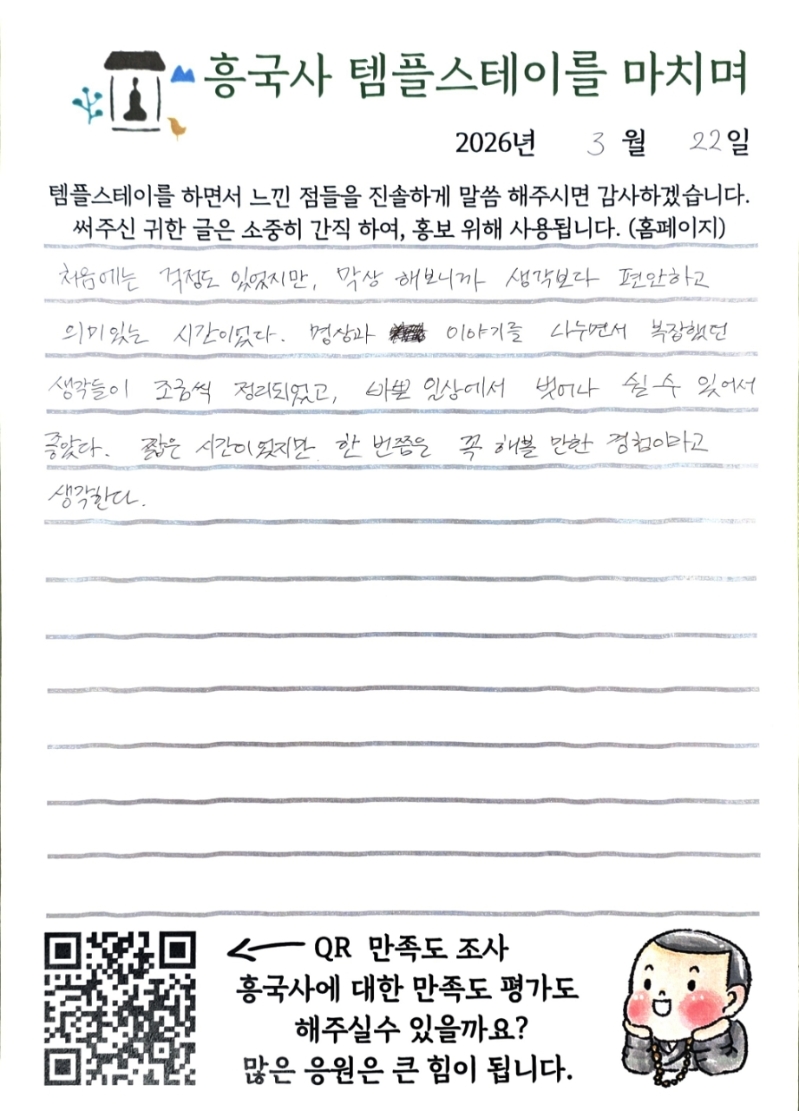 흥국사 템플스테이를 마치며
2026년 3월 22일
템플스테이를 하면서 느낀 점들을 진솔하게 말씀 해주시면 감사하겠습니다.
써주신 귀한 글은 소중히 간직 하여, 홍보 위해 사용됩니다. (홈페이지)
처음에는 걱정도 있었지만, 막상 해보니까 생각보다 편안하고
의미있는 시간이었다. 명상과 이야기를 나누면서 복잡했던
생각들이 조금씩 정리되었고, 바쁜 일상에서 벗어나 쉴 수 있어서
좋았다. 짧은 시간이었지만 한 번쯤은 꼭 해볼 만한 경험이라고
생각한다.
QR 만족도 조사
흥국사에 대한 만족도 평가도
해주실수 있을까요?
많은 응원은 큰 힘이 됩니다.